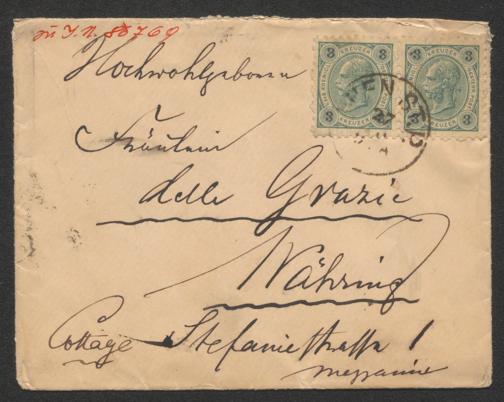 zu I.N. 88769
Hochwohlgeboren
Fräulein
delle Grazie
Währing
Cottage Stefaniestrasse 1
mezzanin
3 KREUZER 3
3 KREUZER 3
WIEN
27